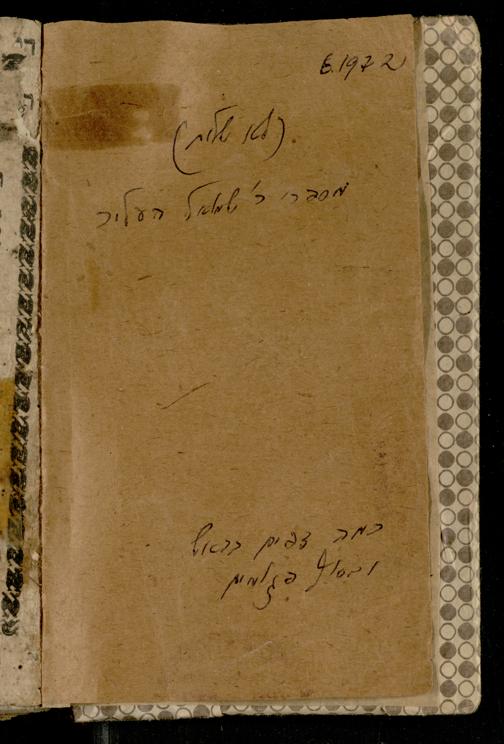 E.1972
(לא שלוח)
מספרי ר' שמואל העליר
כמה דפים בראש
ובסוף פגומים